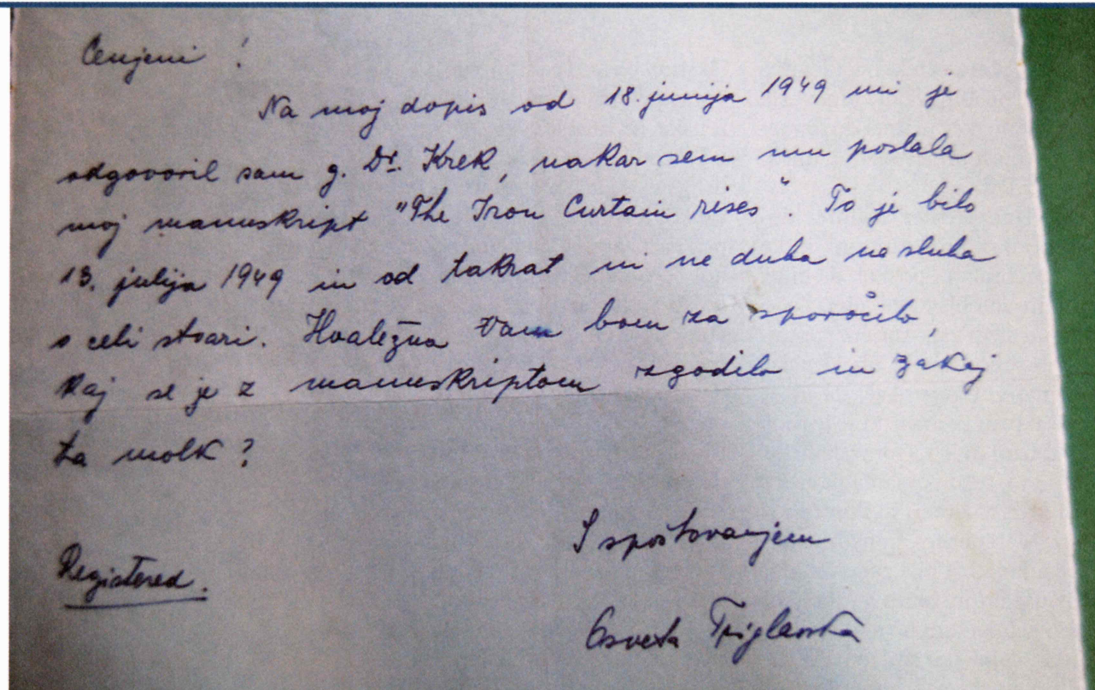 Cenjeni !
Na moj dopis od 18. junija 1949 mi je
odgovoril sam g. Dr. Krek, nakar sem mu poslala
moj manuskript "The Iron Curtain rises". To je bilo
13. julija 1949 in od takrat ni ne duha ne sluha
o celi stvari. Hvaležna Vam bom za sporočilo,
kaj se je z manuskriptom zgodilo in zakaj
ta molk?
S spoštovanjem
Registered.
Osveta Triglavska